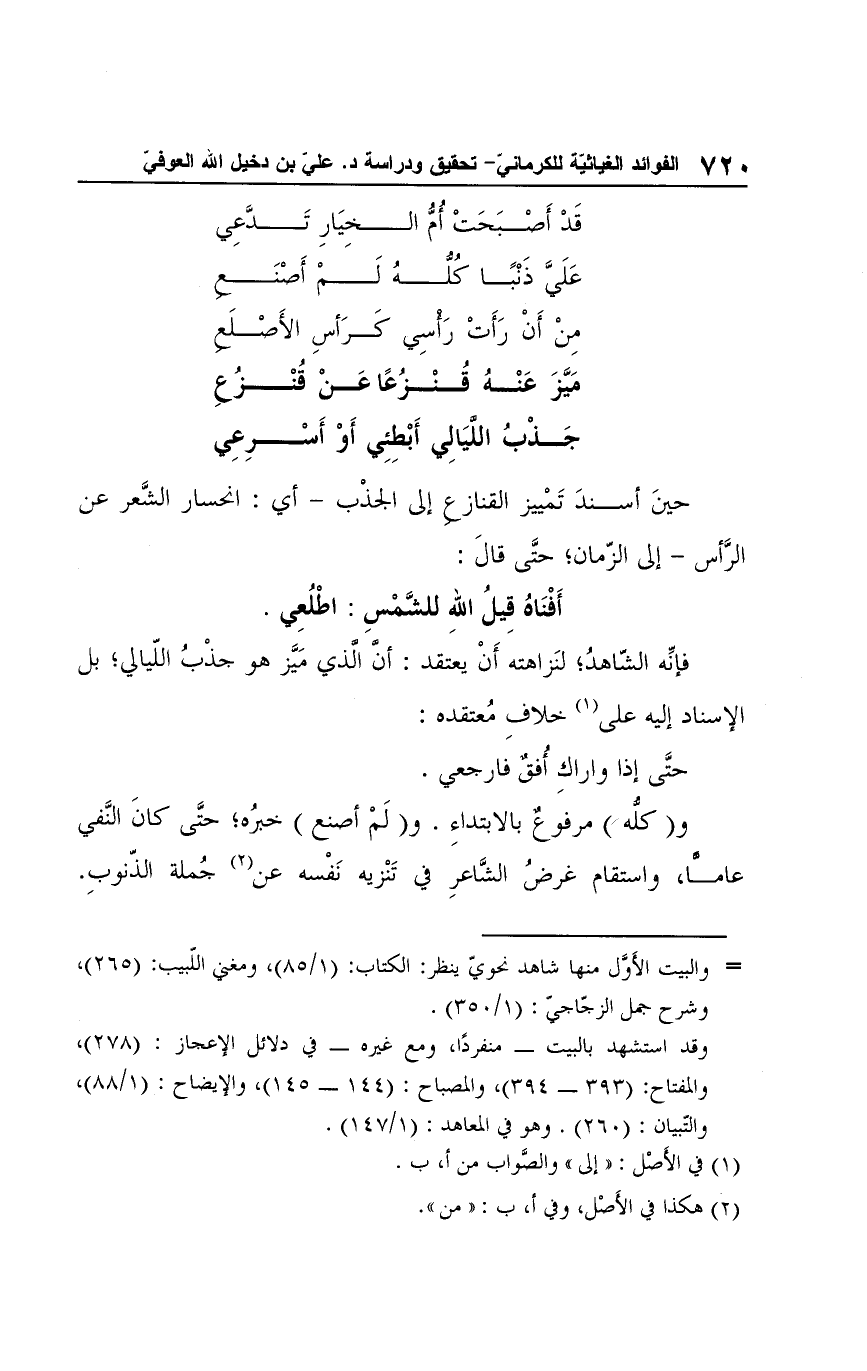 ٧٢٠ الفوائد الغياثيّة للكرمانيّ- تحقيق ودراسة د. عليّ بن دخيل الله العوفيّ
قَدْ أَصْبَحَتْ أُمُّ الخِيَارِ تَدَّعِي
عَلَيَّ ذَنْبًا كُلُّهُ لَمْ أَصْنَعِ
مِنْ أَنْ رَأَتْ رَأْسِي كَرَأسِ الأَصْلَعِ
مَيَّزَ عَنْهُ قُنْزُعًا عَنْ قُنْزُعِ
جَذْبُ اللَّيَالِي أَبْطِئِي أَوْ أَسْرِعِي
حينَ أسندَ تَمْييز القنازعِ إلى الجذْب – أي : انحسار الشَّعر عن
الرَّأس – إلى الزّمان؛ حتَّى قالَ :
أَفْنَاهُ قِيلُ اللهِ للشَّمْسِ : اطْلُعِي .
فإنَّه الشّاهدُ؛ لنَزاهته أنْ يعتقد : أنَّ الَّذي مَيَّز هو جذْبُ اللّيالي؛ بل
الإسناد إليه على(١) خلافِ مُعتقده :
حتَّى إذا واراكِ أُفقٌ فارجعي .
و( كلُّه ) مرفوعٌ بالابتداءِ . و( لَمْ أصنع ) خبرُه؛ حتَّى كانَ النَّفي
عامًّا، واستقام غرضُ الشَّاعرِ في تَنْزيه نَفْسه عن(٢) جُملة الذّنوبِ.
= والبيت الأوَّل منها شاهد نحويّ ينظر: الكتاب: (٨٥/١)، ومغني اللّبيب: (٢٦٥)،
وشرح جمل الزجّاجيّ : (٣٥٠/١) .
وقد استشهد بالبيت – منفردًا، ومع غيره – في دلائل الإعجاز : (٢٧٨)،
والمفتاح: (٣٩٣ – ٣٩٤)، والمصباح : (١٤٤ – ١٤٥)، والإيضاح : (٨٨/١)،
والتّبيان : (٢٦٠) . وهو في المعاهد : (١٤٧/١) .
(١) في الأَصْل : «إلى» والصَّواب من أ، ب .
(٢) هكذا في الأَصْل، وفي أ، ب : «من».